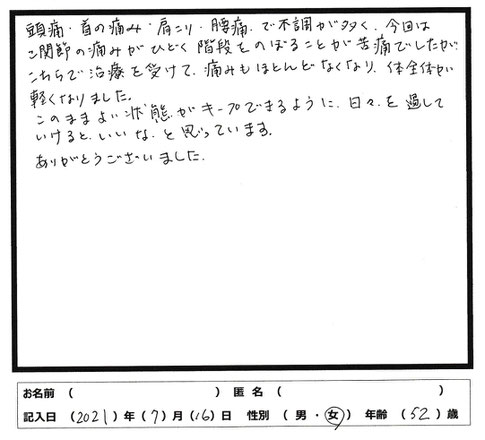 頭痛・首の痛み・肩こり・腰痛・で不調が多く、今回は
関節の痛みがひどく階段をのぼることが苦痛でしたが
こちらで治療を受けて、痛みもほとんどなくなり、体全体が
軽くなりました。
このままよい状態がキープできるように、日々を過して
いけるといいな、と思っています。
ありがとうございました。
お名前 ( ) 匿名 ( )
記入日 (2021) 年 (7) 月 (16) 日 性別 (男・女) 年齢 (52) 歳